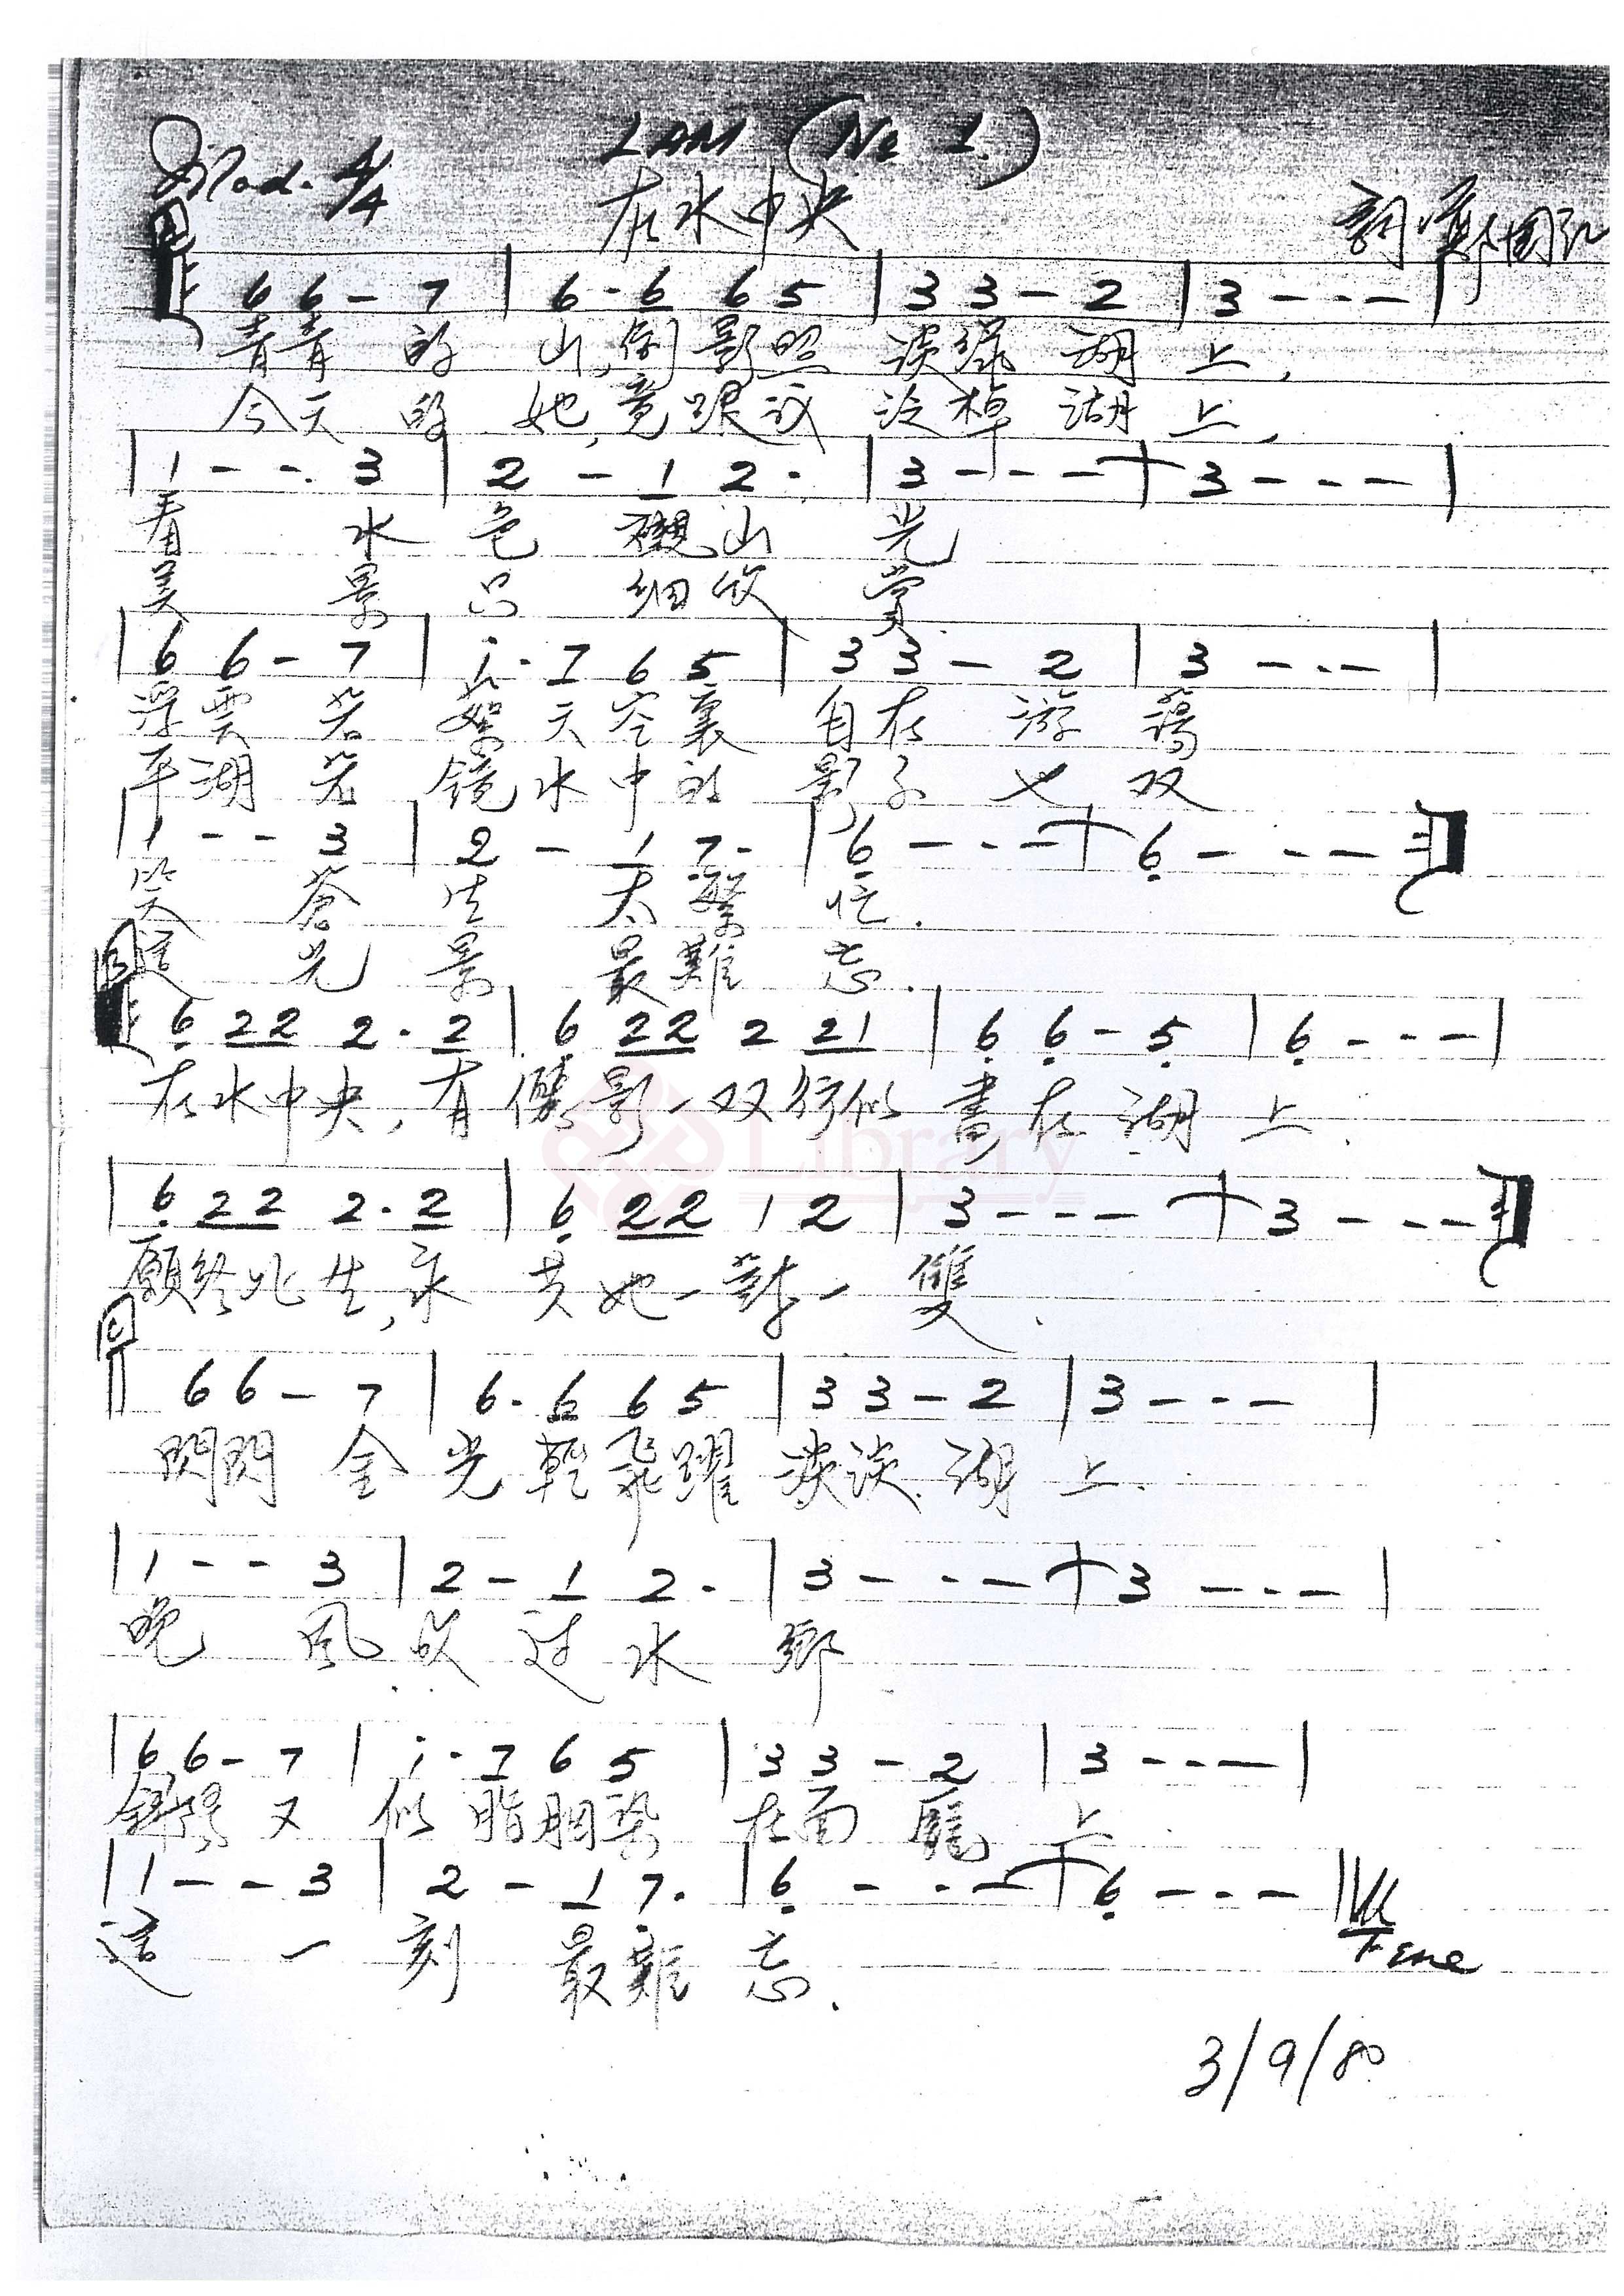 Mod. 4/4
LAM (No 1.)
在水中央
詞:鄭國江
A
6 6 - 7 | 6 · 6 6 5 | 3 3 - 2 | 3 - - - |
青青 的 山,倒影照 淡綠 湖 上,
今天 的 她,竟跟我 泛棹 湖 上,
| 1 - - 3 | 2 - 1 2 · | 3 - - - | 3 - - - |
看 水 色 襯山 光
美 景 只 細欣 賞.
| 6 6 - 7 | i · 7 6 5 | 3 3 - 2 | 3 - - - |
浮雲 若 絮天空裏 自在 游 蕩
平湖 若 鏡水中的 影子 也 双
| 1 - - 3 | 2 - 1 7 · | 6 - - - | 6 - - - |
笑 蒼 生 太繁 忙.
這 光 景 最難 忘.
B
6 22 2 · 2 | 6 22 2 21 | 6 6 - 5 | 6 - - - |
在水中央,有 儷影一双行似 畫在湖上.
| 6 22 2 · 2 | 6 22 1 2 | 3 - - - | 3 - - -
願終此生,永 共她一對一 雙.
C
6 6 - 7 | 6 · 6 6 5 | 3 3 - 2 | 3 - - - |
閃閃 金 光乾飛躍 淡淡 湖 上.
| 1 - - 3 | 2 - 1 2 · | 3 - - - | 3 - - - |
晚 風 吹 过 水 鄉
| 6 6 - 7 | i · 7 6 5 | 3 3 - 2 | 3 - - - |
又 似 脂胭染 在面 龐 上
| 1 - - 3 | 2 - 1 7 · | 6 - - - | 6 - - - |
這 一 刻 最難 忘.
Fine
3/9/80
Library